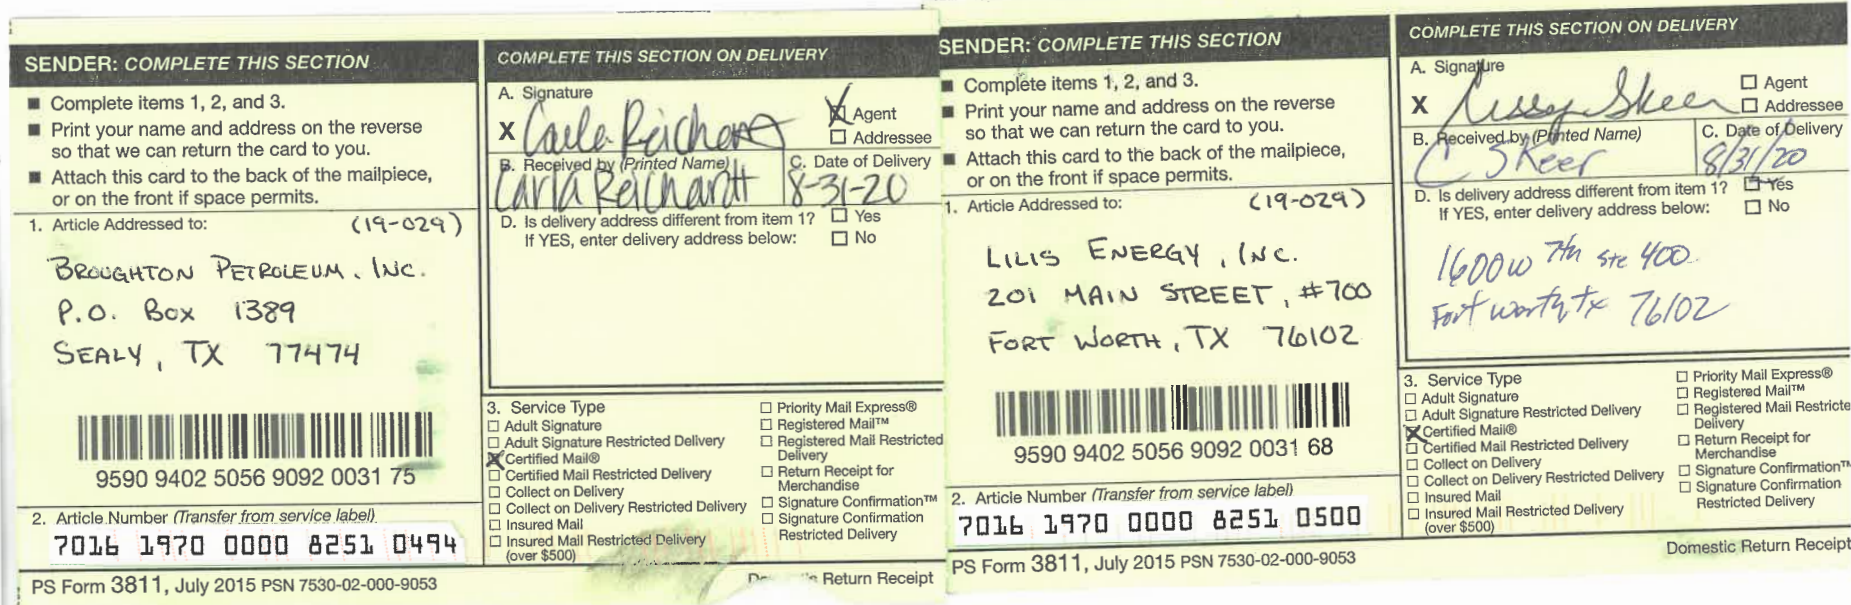 SENDER: COMPLETE THIS SECTION
■ Complete items 1, 2, and 3.
■ Print your name and address on the reverse
so that we can return the card to you.
■ Attach this card to the back of the mailpiece,
or on the front if space permits.
1. Article Addressed to: (19-029)
BROUGHTON PETROLEUM, INC.
P.O. BOX 1389
SEALY, TX 77474
9590 9402 5056 9092 0031 75
2. Article Number (Transfer from service label)
7016 1970 0000 8251 0494
PS Form 3811, July 2015 PSN 7530-02-000-9053
COMPLETE THIS SECTION ON DELIVERY
A. Signature
X Carla Reichardt
☒ Agent
☐ Addressee
B. Received by (Printed Name)
Carla Reichardt
C. Date of Delivery
8-31-20
D. Is delivery address different from item 1? ☐ Yes
If YES, enter delivery address below: ☐ No
3. Service Type
☐ Adult Signature
☐ Adult Signature Restricted Delivery
☒ Certified Mail®
☐ Certified Mail Restricted Delivery
☐ Collect on Delivery
☐ Collect on Delivery Restricted Delivery
☐ Insured Mail
☐ Insured Mail Restricted Delivery
(over $500)
☐ Priority Mail Express®
☐ Registered Mail™
☐ Registered Mail Restricted
Delivery
☐ Return Receipt for
Merchandise
☐ Signature Confirmation™
☐ Signature Confirmation
Restricted Delivery
Return Receipt
SENDER: COMPLETE THIS SECTION
■ Complete items 1, 2, and 3.
■ Print your name and address on the reverse
so that we can return the card to you.
■ Attach this card to the back of the mailpiece,
or on the front if space permits.
1. Article Addressed to: (19-029)
LILIS ENERGY, INC.
201 MAIN STREET, #700
FORT WORTH, TX 76102
9590 9402 5056 9092 0031 68
2. Article Number (Transfer from service label)
7016 1970 0000 8251 0500
PS Form 3811, July 2015 PSN 7530-02-000-9053
COMPLETE THIS SECTION ON DELIVERY
A. Signature
X Skeer
☐ Agent
☐ Addressee
B. Received by (Printed Name)
C Skeer
C. Date of Delivery
8/31/20
D. Is delivery address different from item 1? ☒ Yes
If YES, enter delivery address below: ☐ No
1600 W 7th Ste 400
Fort Worth, tx 76102
3. Service Type
☐ Adult Signature
☐ Adult Signature Restricted Delivery
☒ Certified Mail®
☐ Certified Mail Restricted Delivery
☐ Collect on Delivery
☐ Collect on Delivery Restricted Delivery
☐ Insured Mail
☐ Insured Mail Restricted Delivery
(over $500)
☐ Priority Mail Express®
☐ Registered Mail™
☐ Registered Mail Restricte
Delivery
☐ Return Receipt for
Merchandise
☐ Signature Confirmation™
☐ Signature Confirmation
Restricted Delivery
Domestic Return Receipt